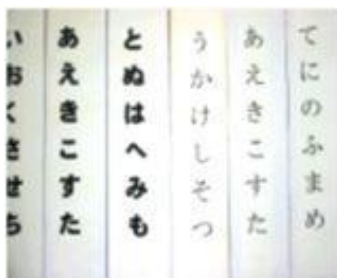 てにのふまめ
あえきこすた
うかけしそつ
とぬはへみも
あえきこすた
いおくさせち